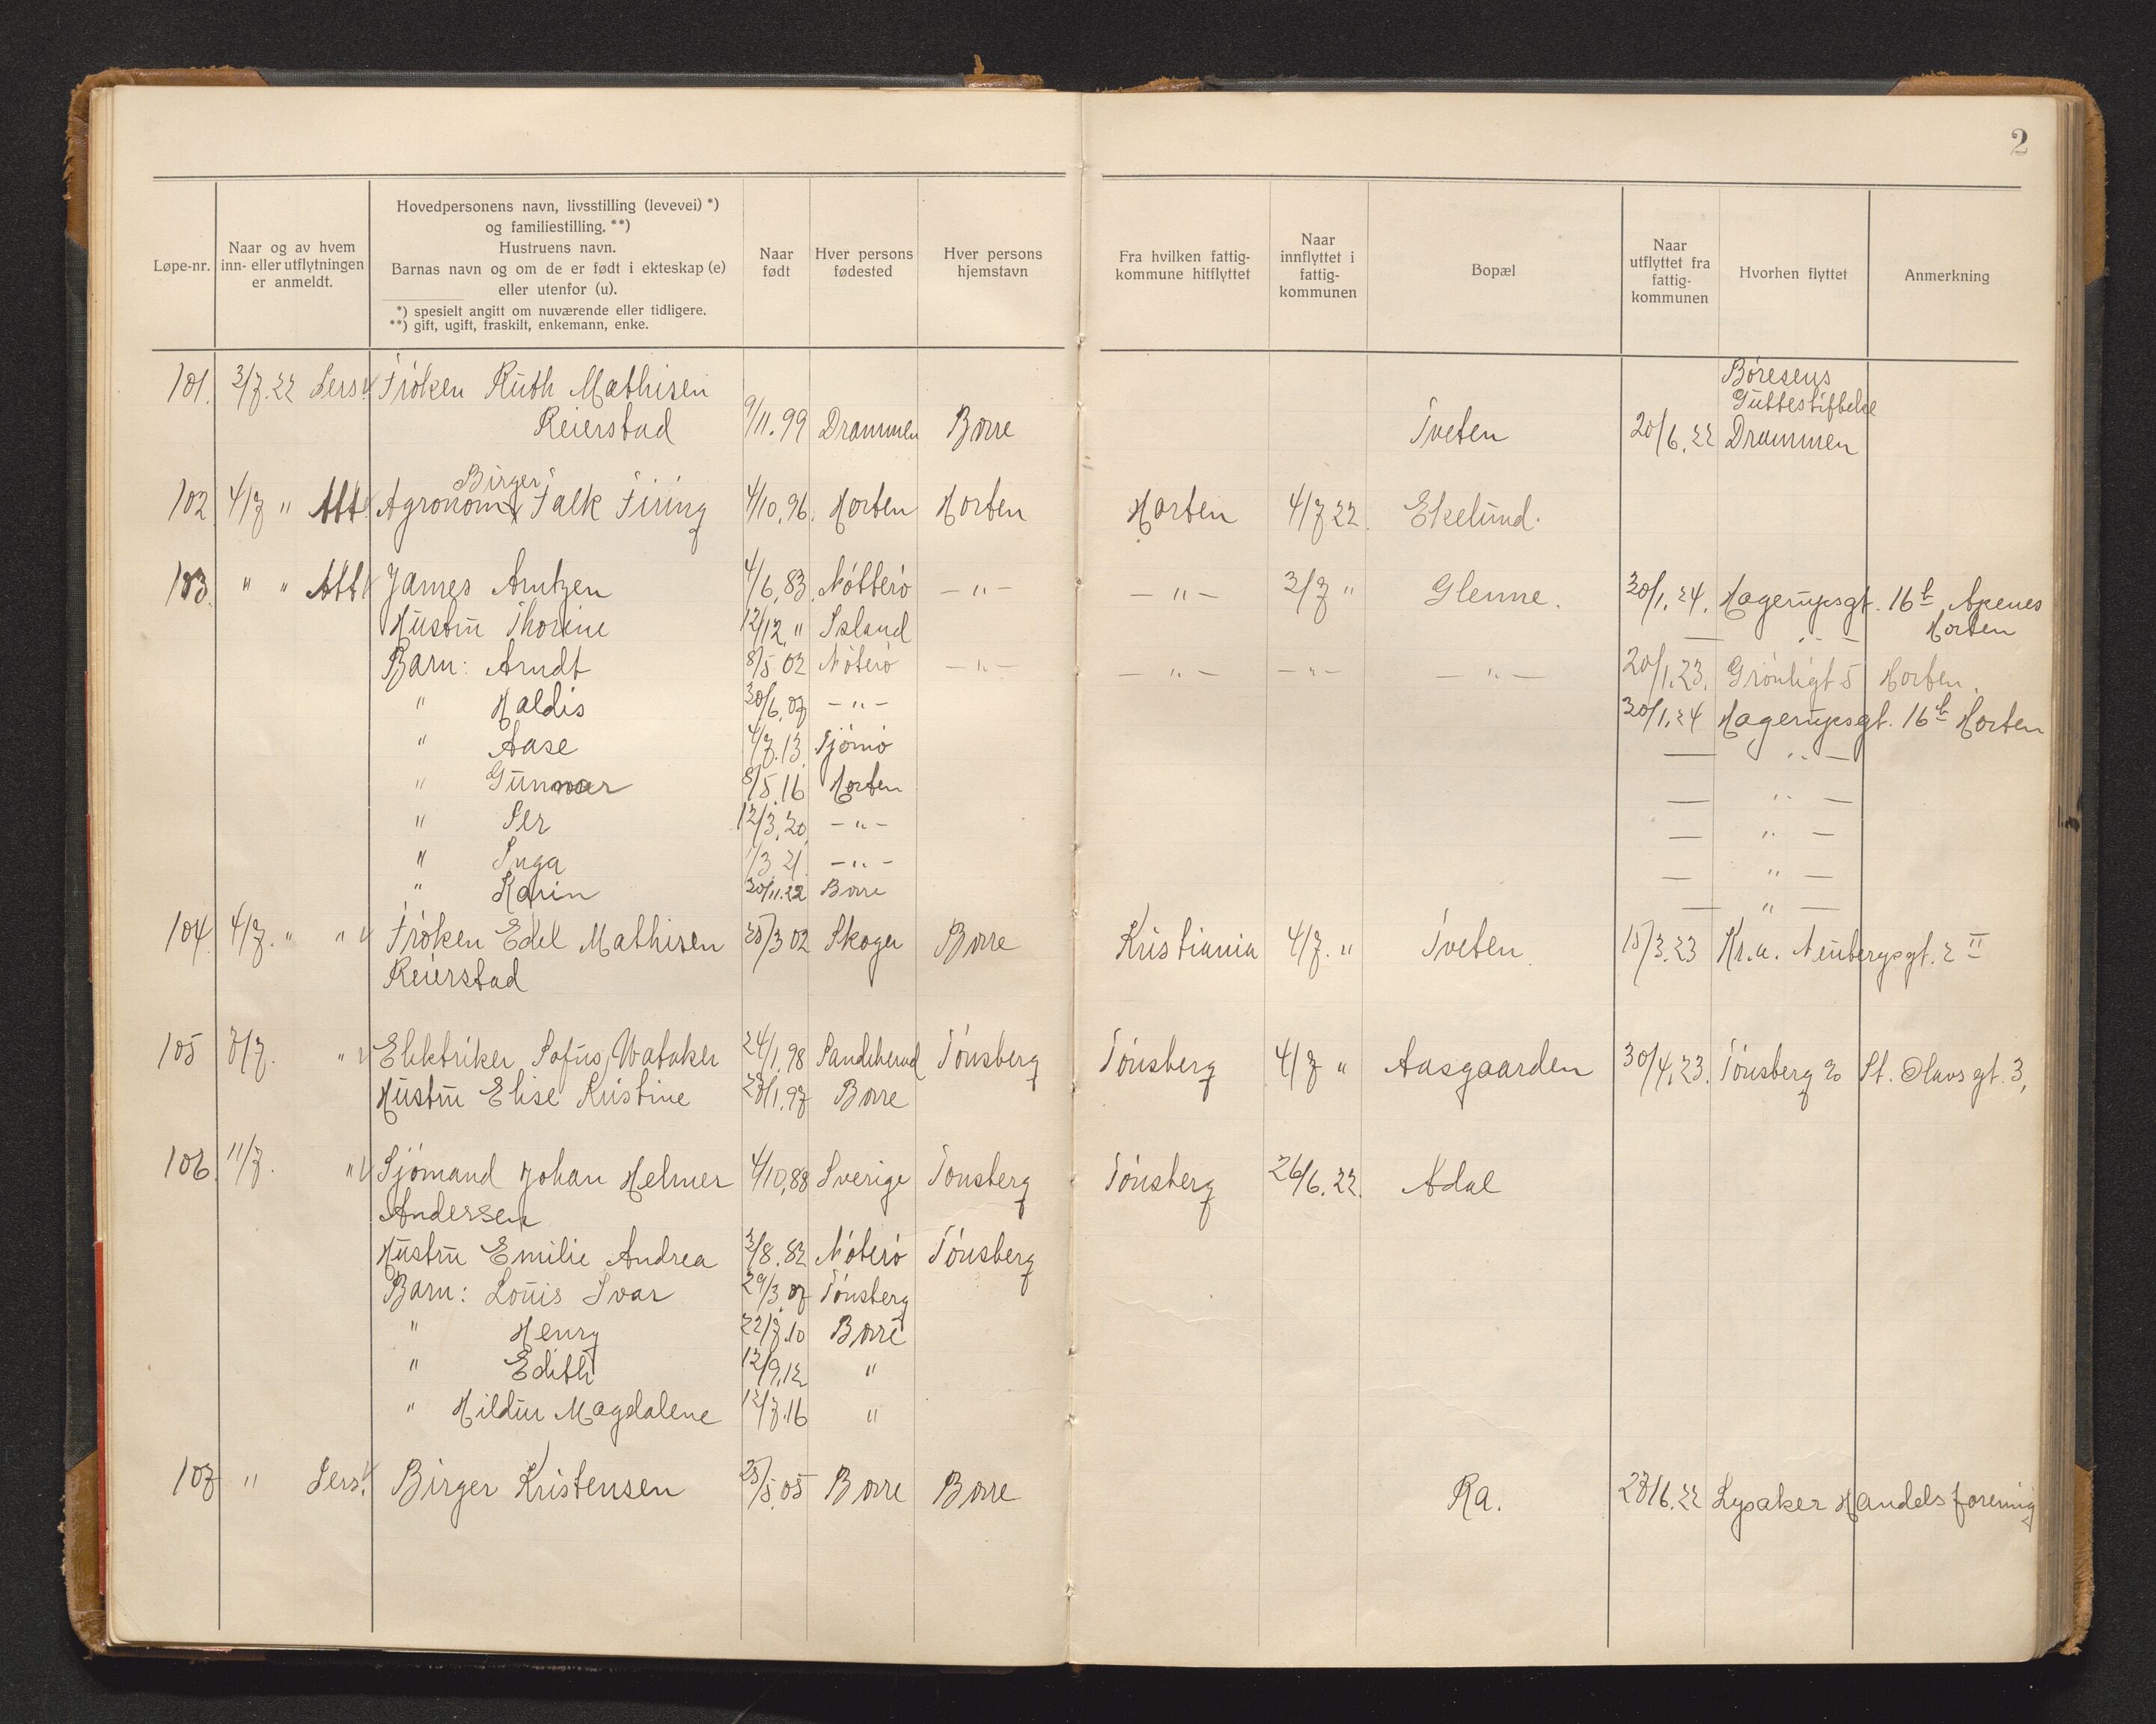 2
Løpe-nr.
Naar og av hvem
inn- eller utflytningen
er anmeldt.
Hovedpersonens navn, livsstilling (levevei) *)
og familiestilling. **)
Hustruens navn.
Barnas navn og om de er født i ekteskap (e)
eller utenfor (u).
*) spesielt angitt om nuværende eller tidligere.
**) gift, ugift, fraskilt, enkemann, enke.
Naar
født
Hver persons
fødested
Hver persons
hjemstavn
Fra hvilken fattig-
kommune hitflyttet
Naar
innflyttet i
fattig-
kommunen
Bopæl
Naar
utflyttet fra
fattig-
kommunen
Hvorhen flyttet
Anmerkning
101. 3/7.22 Lers. Frøken Ruth Mathisen Børesens
Guttestiftelse
Reierstad 9/11.99 Drammen Borre Tveten 20/6.22 Drammen
Birger
102 4/7 " Att. Agronom Falk Firing 4/10.96. Horten Horten Horten 4/7 22. Ekelund.
103. " " Att. James Arntzen 4/6.83. Nøtterø — " — — " — 3/7 " Glenne. 30/1.24. Hagerupsgt. 16b Apenes
Horten
Hustru Thorine 12/12 " Island — " —
Barn: Arndt 8/5 02 Nøterø — " — — " — — " — — " — 20/1.23. Grønligt 5 Horten.
" Haldis 30/6.07 — " — 30/1.24 Hagerupsgt. 16b Horten
" Aase 4/7.13. Tjømø — " —
" Gunnar 8/5.16 Horten — " —
" Per 12/3.20. — " — — " —
" Inga 1/3 21. — " — — " —
" Karin 30/11.22 Borre — " —
104 4/7. " " Frøken Edel Mathisen 25/3 02 Skoger Borre Kristiania 4/7. " Tveten 15/3.23 Kr.a. Neubergsgt. 2 II
Reierstad
105 8/7. " Elektriker Sofus Wataker 24/1.98 Sandeherred Tønsberg Tønsberg 4/7 " Aasgaarden 30/4.23. Tønsberg St. Olavsgt. 3,
Hustru Elise Kristine 28/1.97 Borre
106. 11/7. " Sjømand Johan Helmer 4/10.88 Sverige Tønsberg Tønsberg 26/6.22. Adal
Andersen
Hustru Emilie Andrea 3/8.82 Nøterø Tønsberg
Barn: Louis Ivar 29/3.07 Tønsberg
" Henry 22/7.10 Borre
" Edith 12/9.12 "
" Hildur Magdalene 12/7.16 "
107 " Lers. Birger Kristensen 25/5.05 Borre Borre Ra. 28/6.22 Lysaker Handelsforening